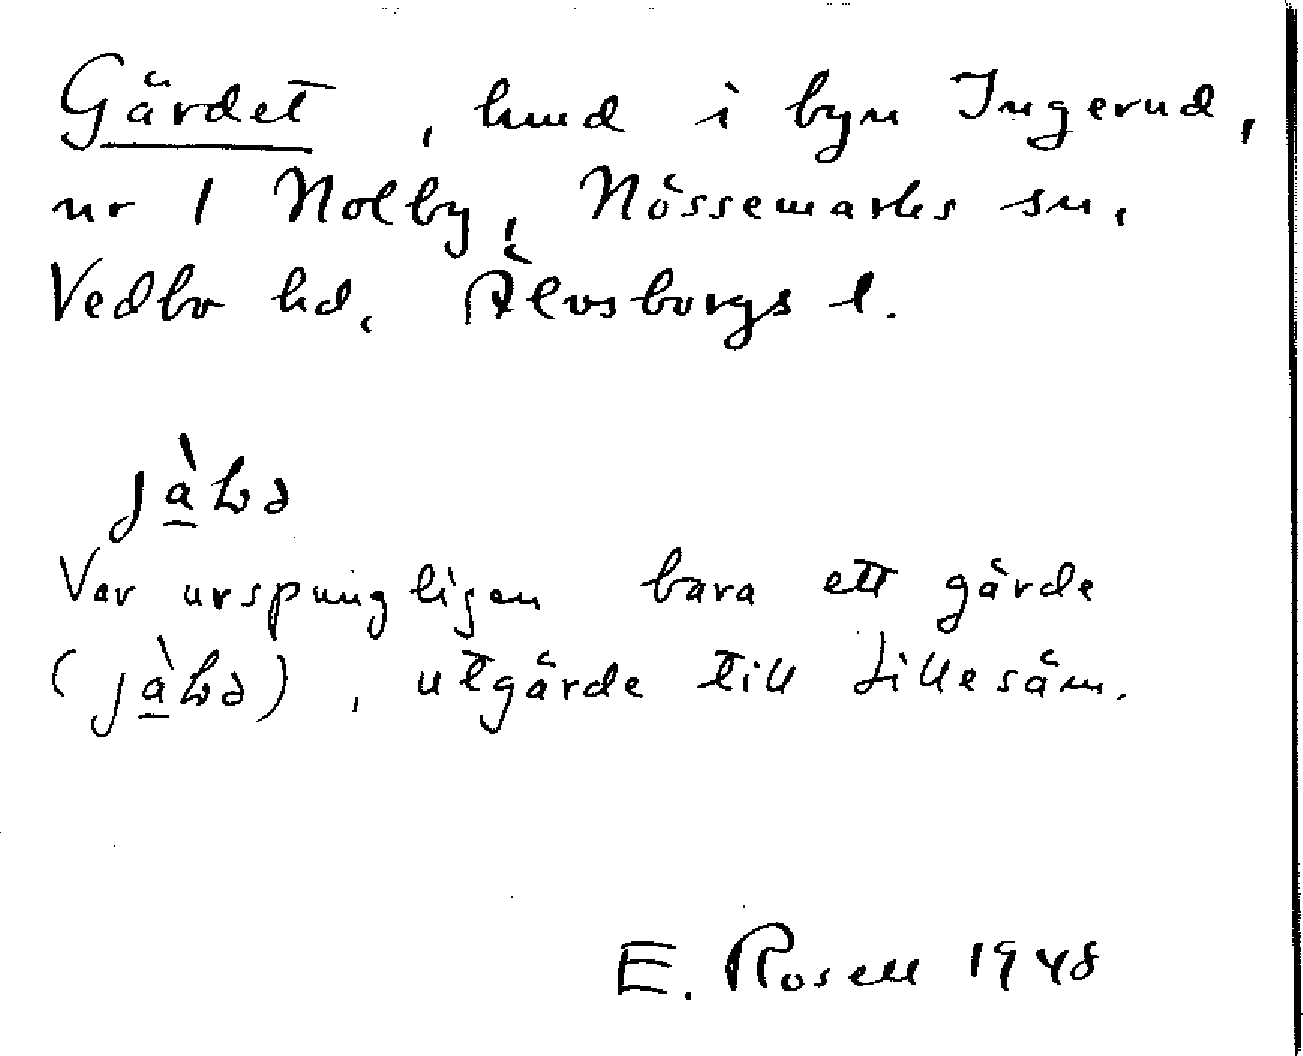 Gärdet, hmd i byn Ingerud,
nr 1 Nolby, Nössemarks sn,
Vedbo hd, Älvsborgs l.
Var urspungligen bara ett gärde
utgärde till Lillesäm.
E. Rosell 1948